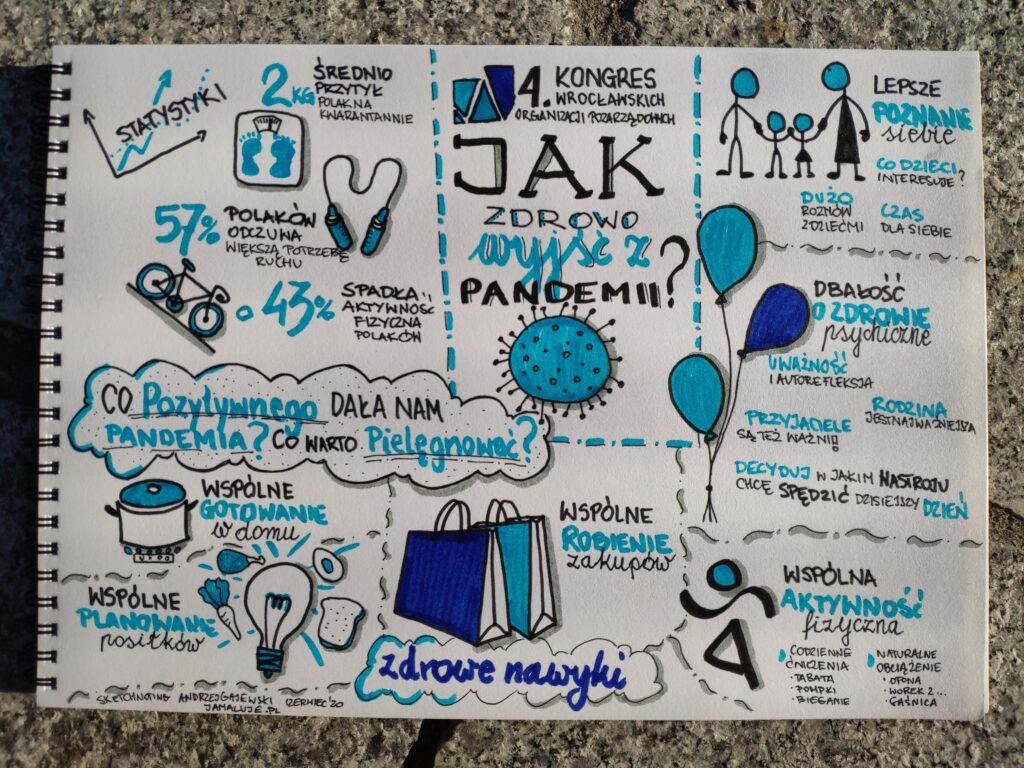 STATYSTYKI
2KG
ŚREDNIO
PRZYTYŁ
POLAK NA
KWARANTANNIE
57%
POLAKÓW
ODCZUWA
WIĘKSZĄ POTRZEBĘ
RUCHU
O 43%
SPADŁA
AKTYWNOŚĆ
FIZYCZNA
POLAKÓW
4. KONGRES
WROCŁAWSKICH
ORGANIZACJI POZARZĄDOWYCH
JAK
ZDROWO
wyjść z
PANDEMII?
LEPSZE
POZNANIE
siebie
CO DZIECI
INTERESUJE?
DUŻO
ROZMÓW
Z DZIEĆMI
CZAS
DLA SIEBIE
DBAŁOŚĆ
O ZDROWIE
psychiczne
UWAŻNOŚĆ
I AUTOREFLEKSJA
RODZINA
JEST NAJWAŻNIEJSZA
PRZYJACIELE
SĄ TEŻ WAŻNI!
DECYDUJ W JAKIM NASTROJU
CHCĘ SPĘDZIĆ DZISIEJSZY DZIEŃ
CO Pozytywnego DAŁA NAM
PANDEMIA? CO WARTO Pielęgnować?
WSPÓLNE
GOTOWANIE
w domu
WSPÓLNE
PLANOWANIE
posiłków
WSPÓLNE
ROBIENIE
zakupów
zdrowe nawyki
WSPÓLNA
AKTYWNOŚĆ
fizyczna
CODZIENNE
ĆWICZENIA
· TABATA
· POMPKI
· BIEGANIE
NATURALNE
OBCIĄŻENIE
· OPONA
· WOREK Z...
· GAŚNICA
SKETCHNOTING ANDRZEJ GAJEWSKI CZERWIEC '20
JAMALUJE.PL